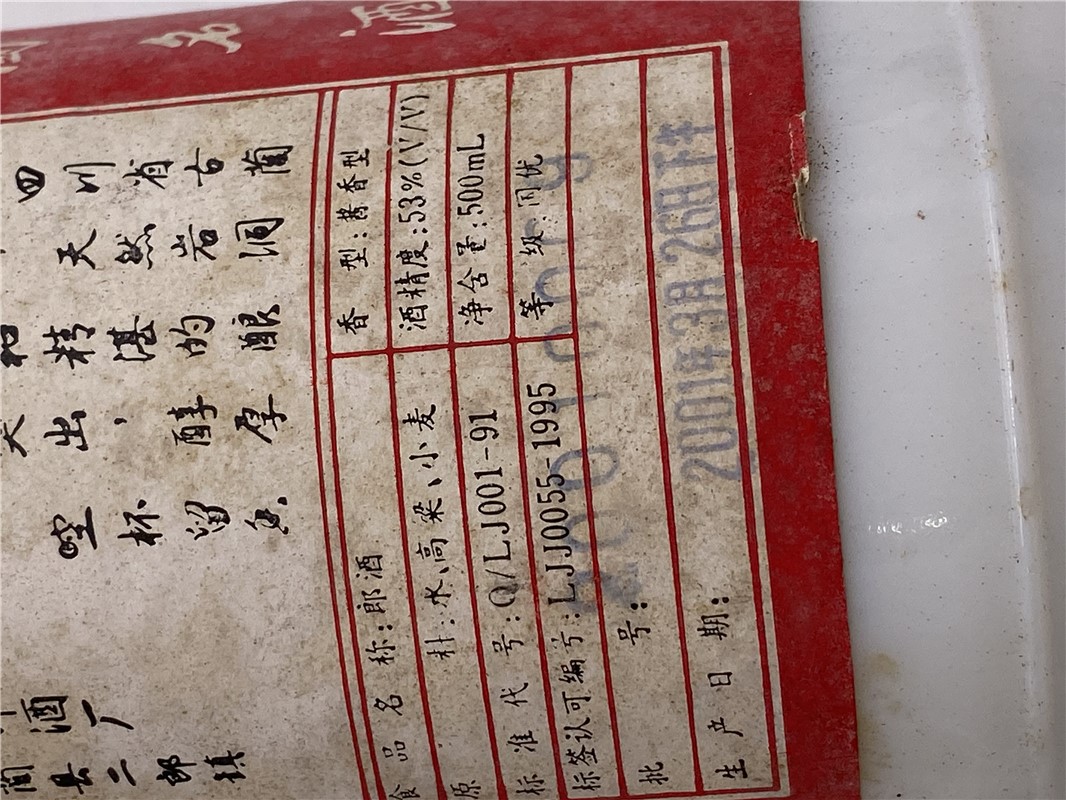 名酒
四川省古蔺
天然岩洞
和精湛的酿
出，醇厚
空杯留香
酒厂
蔺县二郎镇
食品名称:郎酒 香型:酱香型
原料:水、高粱、小麦 酒精度:53%(V/V)
标准代号:Q/LJ001-91 净含量:500mL
标签认可编号:LJJ0055-1995 等级:国优
批号:
生产日期: 2001年3月26日下午